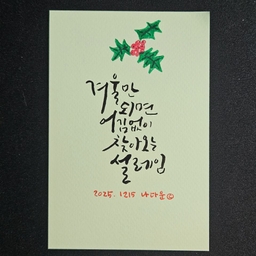 겨울만
되면
어김없이
찾아오는
설레임
2025. 12.15 나다운